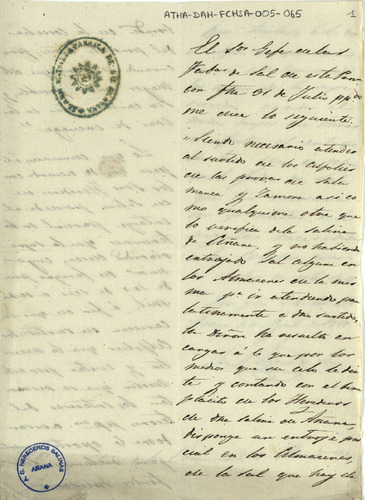 ATHA-DAH-FCHSA-005-065
1
El Sor Gefe de las
de Sal de esta
con fha 31 de Julio ppdo
me dice lo siguiente.
Siendo necesario atender
al surtido de los Alfolies
de las provas de Sala
manca y Zamora asi co
mo qualquiera otra que
lo verifica de la salina
de Añana, y no habiendo
entrojado Sal alguna en
los Almacenes de la mis
ma pa ir atendiendo par
latinamente a dho surtido,
la Diron ha resuelto en
cargar á V. que por los
medios que su celo le dic
te y contando con el bene
placito de los Herederos
de dha salina de Añana,
disponga un entroje par
cial en los Almacenes,
de la sal que hay de
Y G. HEREDEROS SALINAS
AÑANA